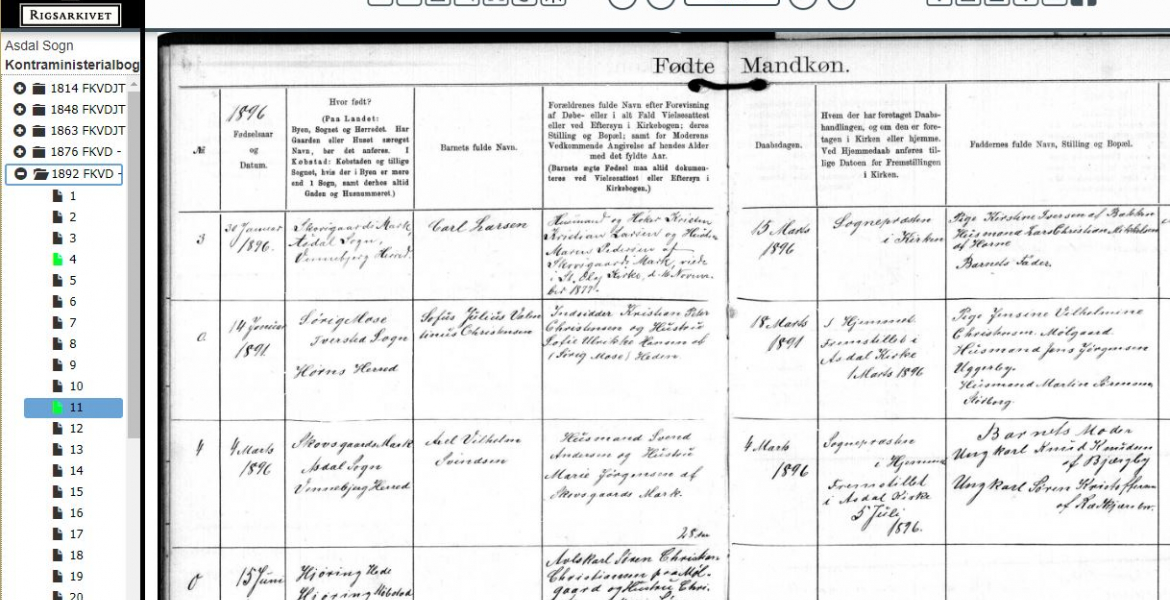 RIGSARKIVET
Asdal Sogn
Kontraministerialbog
1814 FKVDJT
1848 FKVDJT
1863 FKVDJT
1876 FKVD -
1892 FKVD -
1
2
3
4
5
6
7
8
9
10
11
12
13
14
15
16
17
18
19
20
Fødte Mandkøn.
№
1896
Fødselsaar
og
Datum.
Hvor født?
(Paa Landet:
Byen, Sognet og Herredet. Har
Gaarden eller Huset særeget
Navn, bør det anføres. I
Købstad: Købstaden og tillige
Sognet, hvis der i Byen er mere
end 1 Sogn, samt derhos altid
Gaden og Husnummeret.)
Barnets fulde Navn.
Forældrenes fulde Navn efter Forevisning
af Døbe- eller i alt Fald Vielsesattest
eller ved Eftersyn i Kirkebogen; deres
Stilling og Bopæl; samt for Moderens
Vedkommende Angivelse af hendes Alder
med det fyldte Aar.
(Barnets ægte Fødsel maa altid dokumen-
teres ved Vielsesattest eller Eftersyn i
Kirkebogen.)
Daabsdagen.
Hvem der har foretaget Daabs-
handlingen, og om den er fore-
tagen i Kirken eller hjemme.
Ved Hjemmedaab anføres til-
lige Datoen for Fremstillingen
i Kirken.
Faddernes Navn, Stilling og Bopæl.
3
Januar
1896.
Skovsgaards Mark
Asdal Sogn,
Vennebjerg Herred.
Carl Larsen
Husmand og
Kristian Larsen og
Maren Pedersen af
Skovsgaards Mark, viede
i St. Olai Kirke, d. 16 Novem-
ber 1877.
15 Marts
1896
Sognepræsten
i Kirken
Pige Kirstine Iversen af Bakken
Husmand Lars Christian Mikkelsen
af Horne
Barnets Fader.
14 Januar
1891
Sørig Mose
Tversted Sogn
Horns Herred
Sofus Julius Valen
tinus Christensen
Indsidder Kristian Peter
Christensen og Hustru
Sofie Hansen
Sørig Mose
18 Marts
1891
i Hjemmet
Fremstillet i
Asdal Kirke
1 Marts 1896
Pige Jensine Vilhelmine
Christensen Mølgaard
Husmand Jens Jørgensen
Uggerby.
Husmand Martin Sørensen
4
4 Marts
1896
Skovsgaards Mark
Asdal Sogn
Vennebjerg Herred
Axel Vilhelm
Svendsen
Husmand Svend
Andersen og Hustru
Marie Jørgensen af
Skovsgaards Mark.
4 Marts
1896
Sognepræsten
i Hjemmet
Fremstillet
i Asdal Kirke
5 Juli
1896.
Barnets Moder
Ungkarl Knud Knudsen
af Bjærgby
Ungkarl Søren Kristoffersen
af
0
15 Juni
Hjøring Hede
Hjøring
Avlskarl Søren Christian
Christiansen fra Møl-
gaard og Hustru Chri-